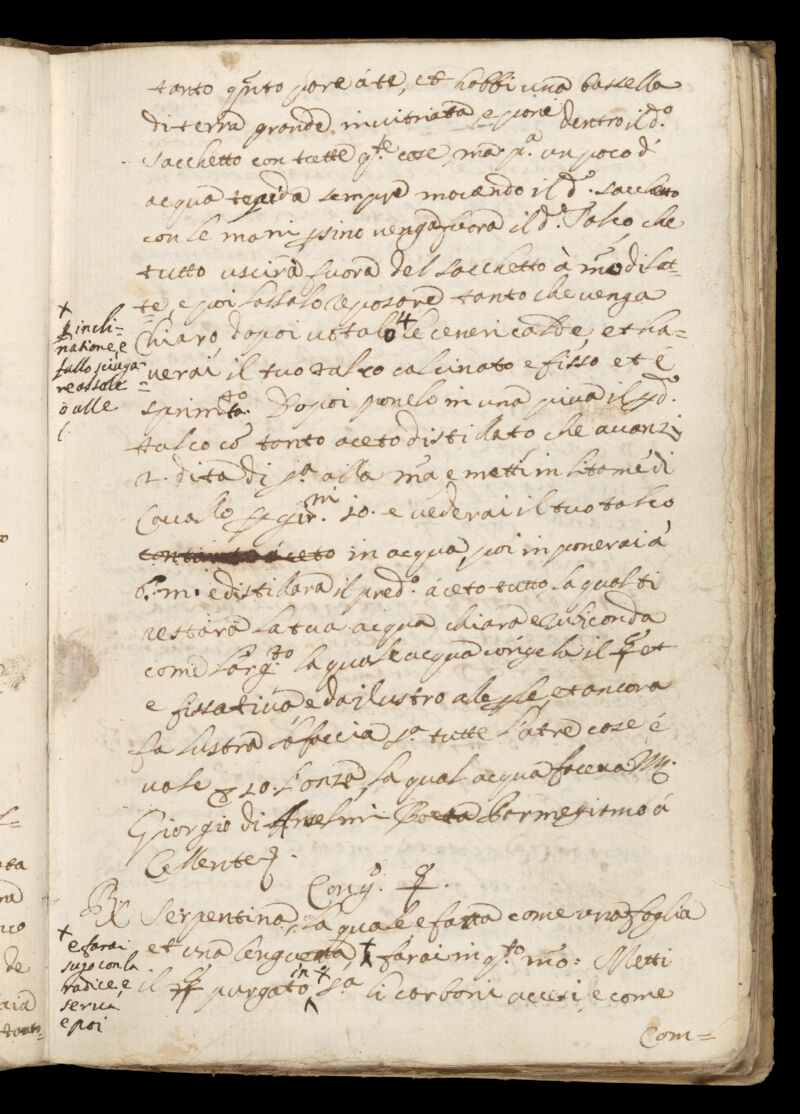 tanto q.nto pare á te, et habbi una bassella
di terra grande invitriata e poni dentro il d.o
Sacchetto con tutte q.te cose, ma p.a un poco d'
acqua tepida sempre movendo il d.o sacchetto
con le mani sino venga fuora il d.o Talco che
tutto uscira fuora del sacchetto à mo di lat=
te, e poi lassalo reposare tanto che venga
Chiaro, dopoi votalo + le ceneri calde, et ha=
verai il tuo talco calcinato e fisso et é
Dopoi ponelo in una piva il pd.o
talco có tanto aceto distillato che avanzi
2. dita di s.a alla e metti in litame di
Cavallo 10. e vederai il tuo talco
in acqua, poi in ponerai á
b. m. e distillara il pred.o áceto tutto, la qual ti
restara la tua acqua chiara e rubiconda
come l'arg.to la quale acqua congela il ☿ et
e fissativa e da il lustro ale et ancora
fa lustra la faccia s.a tutte l'altre cose é
vale 10. l'onza, la qual acqua faceva M.
Giorgio di Anselmi
Cong. ☿.
+
inclinatione, e
fallo
re al sole
ò alle
℞ Serpentina, la quale e fatta come una foglia
et una lenguetta, + farai in q.to mo: Metti
il ☿ purgato in s.a li carboni accesi, e come
+
e farai
sugo con la
radice, e
e poi
Com=